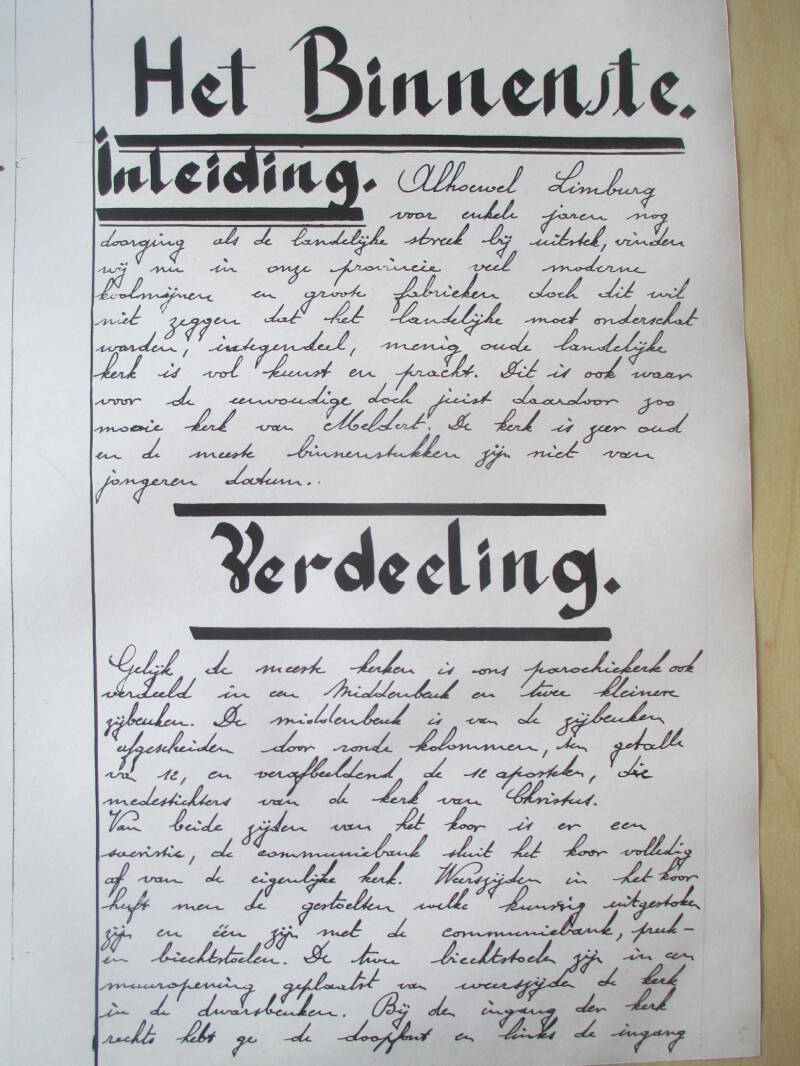 Het Binnenste.
Inleiding. Alhoewel Limburg
voor enkele jaren nog
doorging als de landelijke streek bij uitstek, vinden
wij nu in onze provincie veel moderne
koolmijnen en groote fabrieken doch dit wil
niet zeggen dat het landelijke moet onderschat
worden, integendeel, menig oude landelijke
kerk is vol kunst en pracht. Dit is ook waar
voor de eenvoudige doch juist daardoor zoo
mooie kerk van Meldert. De kerk is zeer oud
en de meeste binnenstukken zijn niet van
jongeren datum..
Verdeeling.
Gelijk de meeste kerken is ons parochiekerk ook
verdeeld in een Middenbeuk en twee kleinere
zijbeuken. De middenbeuk is van de zijbeuken
afgescheiden door ronde kolommen, ten getalle
van 12, en verafbeeldend de 12 apostelen, die
medestichters van de kerk van Christus.
Van beide zijden van het koor is er een
sacristie, de communiebank sluit het koor volledig
af van de eigenlijke kerk. Weerszijden in het koor
heeft men de gestoelten welke kunstig uitgestoken
zijn en één zijn met de communiebank, preek-
en biechtstoelen. De twee biechtstoelen zijn in een
muuropening geplaatst van weerszijden de kerk
in de dwarsbeuken. Bij den ingang der kerk
rechts hebt ge de doopfont en links de ingang
5